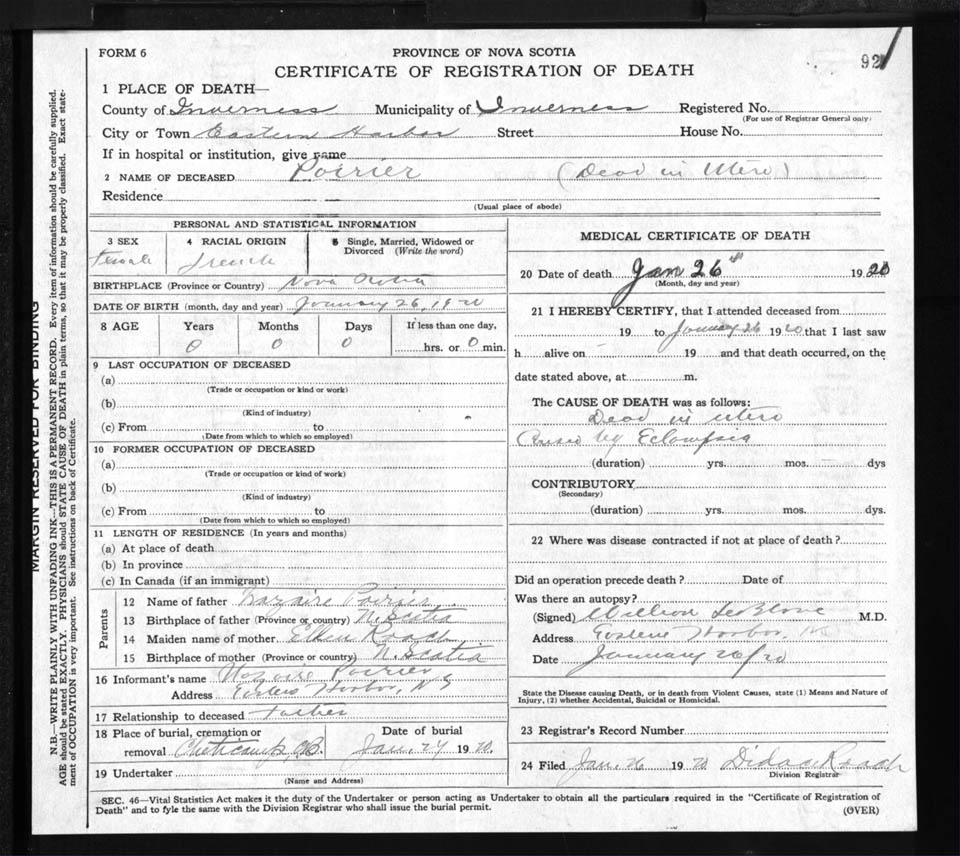 FORM 6
PROVINCE OF NOVA SCOTIA
92
CERTIFICATE OF REGISTRATION OF DEATH
1 PLACE OF DEATH—
County of Inverness Municipality of Inverness Registered No.
(For use of Registrar General only)
City or Town Eastern Harbor Street House No.
If in hospital or institution, give name
2 NAME OF DECEASED Poirier (Dead in Utero)
Residence
(Usual place of abode)
PERSONAL AND STATISTICAL INFORMATION
3 SEX 4 RACIAL ORIGIN 5 Single, Married, Widowed or Divorced (Write the word)
Female French
BIRTHPLACE (Province or Country) Nova Scotia
DATE OF BIRTH (month, day and year) January 26, 1920
8 AGE Years Months Days If less than one day,
0 0 0 hrs. or 0 min.
9 LAST OCCUPATION OF DECEASED
(a)
(Trade or occupation or kind or work)
(b)
(Kind of industry)
(c) From to
(Date from which to which so employed)
10 FORMER OCCUPATION OF DECEASED
(a)
(Trade or occupation or kind of work)
(b)
(Kind of industry)
(c) From to
(Date from which to which so employed)
11 LENGTH OF RESIDENCE (In years and months)
(a) At place of death
(b) In province
(c) In Canada (if an immigrant)
Parents
12 Name of father Poirier
13 Birthplace of father (Province or country) N. Scotia
14 Maiden name of mother Ellen Roach
15 Birthplace of mother (Province or country) N. Scotia
16 Informant's name Poirier
Address Eastern Harbor, N S
17 Relationship to deceased Father
18 Place of burial, cremation or Date of burial
removal Cheticamp, Jan. 27 1920.
19 Undertaker
(Name and Address)
MEDICAL CERTIFICATE OF DEATH
20 Date of death Jan 26th 1920
(Month, day and year)
21 I HEREBY CERTIFY, that I attended deceased from
19 to January 26 1920 that I last saw
h alive on 19 and that death occurred, on the
date stated above, at m.
The CAUSE OF DEATH was as follows:
Dead in utero
Caused by Eclampsia
(duration) yrs. mos. dys
CONTRIBUTORY
(Secondary)
(duration) yrs. mos. dys.
22 Where was disease contracted if not at place of death?
Did an operation precede death? Date of
Was there an autopsy?
(Signed) William LeBlanc M.D.
Address Eastern Harbor,
Date January 26/20
State the Disease causing Death, or in death from Violent Causes, state (1) Means and Nature of
Injury, (2) whether Accidental, Suicidal or Homicidal.
23 Registrar's Record Number
24 Filed Jan. 26 1920 Roach
Division Registrar
SEC. 46—Vital Statistics Act makes it the duty of the Undertaker or person acting as Undertaker to obtain all the particulars required in the "Certificate of Registration of
Death" and to fyle the same with the Division Registrar who shall issue the burial permit.
(OVER)
MARGIN RESERVED FOR BINDING
N.B.—WRITE PLAINLY WITH UNFADING INK—THIS IS A PERMANENT RECORD. Every item of information should be carefully supplied.
AGE should be stated EXACTLY. PHYSICIANS should STATE CAUSE OF DEATH in plain terms, so that it may be properly classified. Exact state-
ment of OCCUPATION is very important. See instructions on back of Certificate.